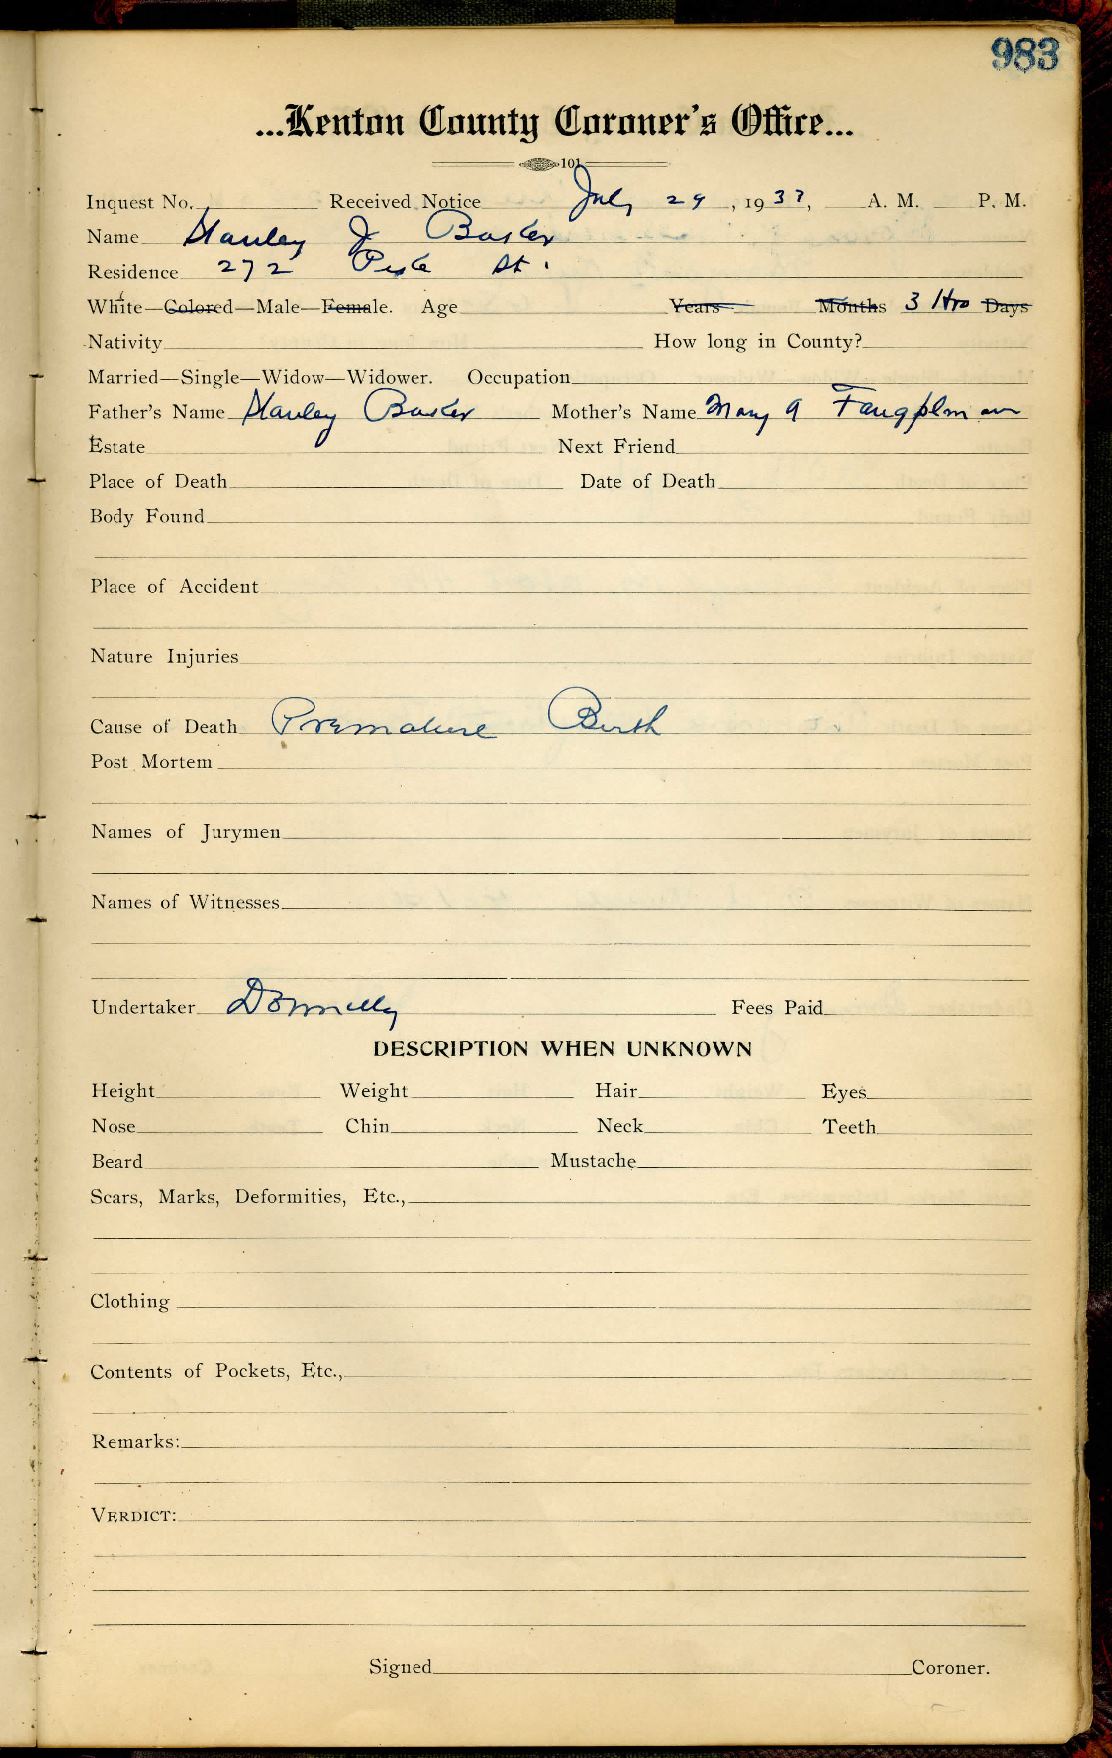 983
...Kenton County Coroner's Office...
101
Inquest No. Received Notice July 29, 1937, A. M. P. M.
Name Stanley J Baxter
Residence 272 Pike St.
White—Colored—Male—Female. Age Years Months 3 Hrs Days
Nativity How long in County?
Married—Single—Widow—Widower. Occupation
Father's Name Stanley Baxter Mother's Name Mary A
Estate Next Friend
Place of Death Date of Death
Body Found
Place of Accident
Nature Injuries
Cause of Death Premature Birth
Post Mortem
Names of Jurymen
Names of Witnesses
Undertaker Donnelly Fees Paid
DESCRIPTION WHEN UNKNOWN
Height Weight Hair Eyes
Nose Chin Neck Teeth
Beard Mustache
Scars, Marks, Deformities, Etc.,
Clothing
Contents of Pockets, Etc.,
Remarks:
VERDICT:
Signed Coroner.